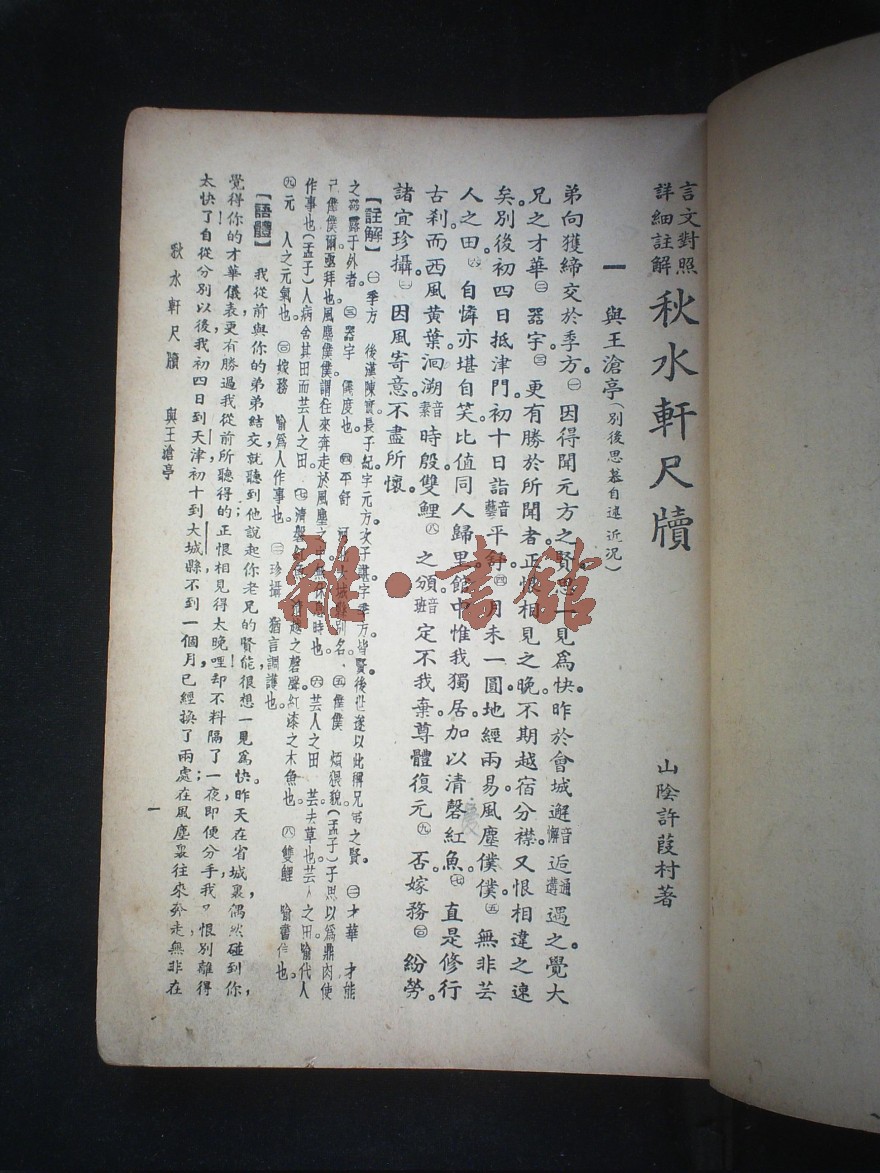 言文對照
詳細註解
秋水軒尺牘
山陰許葭村著
一 與王滄亭(別後思慕自述近況)
弟向獲締交於季方。㊀因得聞元方之賢。思一見爲快。昨於會城邂音懈逅通遘遇之。覺大
兄之才華㊁器宇㊂更有勝於所聞者。正恨相見之晚。不期越宿分襟。又恨相違之速
矣。別後初四日抵津門。初十日詣音藝平舒㊃月未一圓。地經兩易。風塵僕僕㊄無非芸
人之田。㊅自憐亦堪自笑。比值同人歸里。館中惟我獨居。加以清磬紅魚。㊆直是修行
古刹。而西風黃葉。洄溯音素時殷。雙鯉㊇之頒音班定不我棄。尊體復元㊈否。嫁務㊉紛勞。
諸宜珍攝。因風寄意。不盡所懷。
【註解】㊀季方 後漢陳寔長子紀字元方。次子諶字季方。皆賢。後世遂以此稱兄弟之賢。㊁才華 才能
之發露于外者。㊂器宇 儀度也。㊃平舒 河北大城縣別名。㊄僕僕 煩猥貌。(孟子)子思以爲鼎肉使
己僕僕爾亟拜也。風塵僕僕謂往來奔走於風塵之中無休息時也。㊅芸人之田 芸去草也。芸人之田。喻代人
作事也。(孟子)人病舍其田而芸人之田。㊆清磬紅魚 清越之磬聲紅漆之木魚也。㊇雙鯉 喻書信也。
㊈元 人之元氣也。㊉嫁務 喻爲人作事也。珍攝 猶言調護也。
【語體】 我從前與你的弟弟結交,就聽到他說起你老兄的賢能,很想一見爲快。昨天在省城裏,偶然碰到你,
覺得你的才華儀表,更有勝過我從前所聽得的;正恨相見得太晚哩!却不料隔了一夜,即便分手,我又恨別離得
太快了!自從分別以後,我初四日到天津,初十到大城縣,不到一個月,已經換了兩處;在風塵裏往來奔走,無非在
秋水軒尺牘 與王滄亭
一
雜·書館